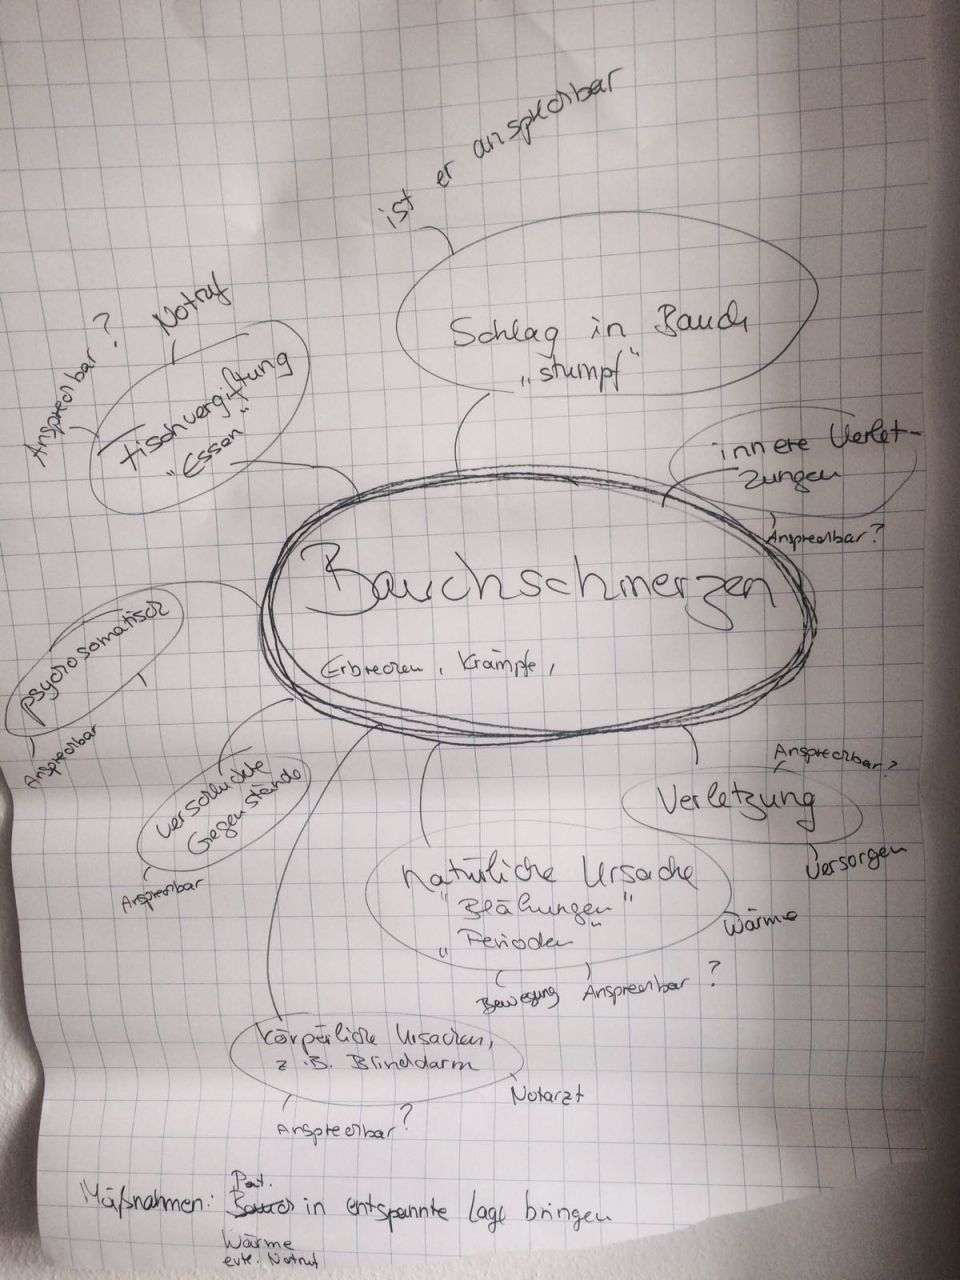 ist er ansprechbar
Schlag in Bauch
„stumpf“
Notruf
Ansprechbar?
Fischvergiftung
"Essen"
innere Verlet-
zungen
Ansprechbar?
Bauchschmerzen
Erbrechen, Krämpfe,
psychosomatisch
Ansprechbar
verschluckte
Gegenstände
Ansprechbar
Ansprechbar?
Verletzung
Versorgen
Natürliche Ursache
"Blähungen"
„Perioden“
Wärme
Bewegung Ansprechbar?
körperliche Ursachen,
z.B. Blinddarm
Notarzt
Ansprechbar?
Pat.
Maßnahmen: Bauch in entspannte Lage bringen
Wärme
evtl. Notruf